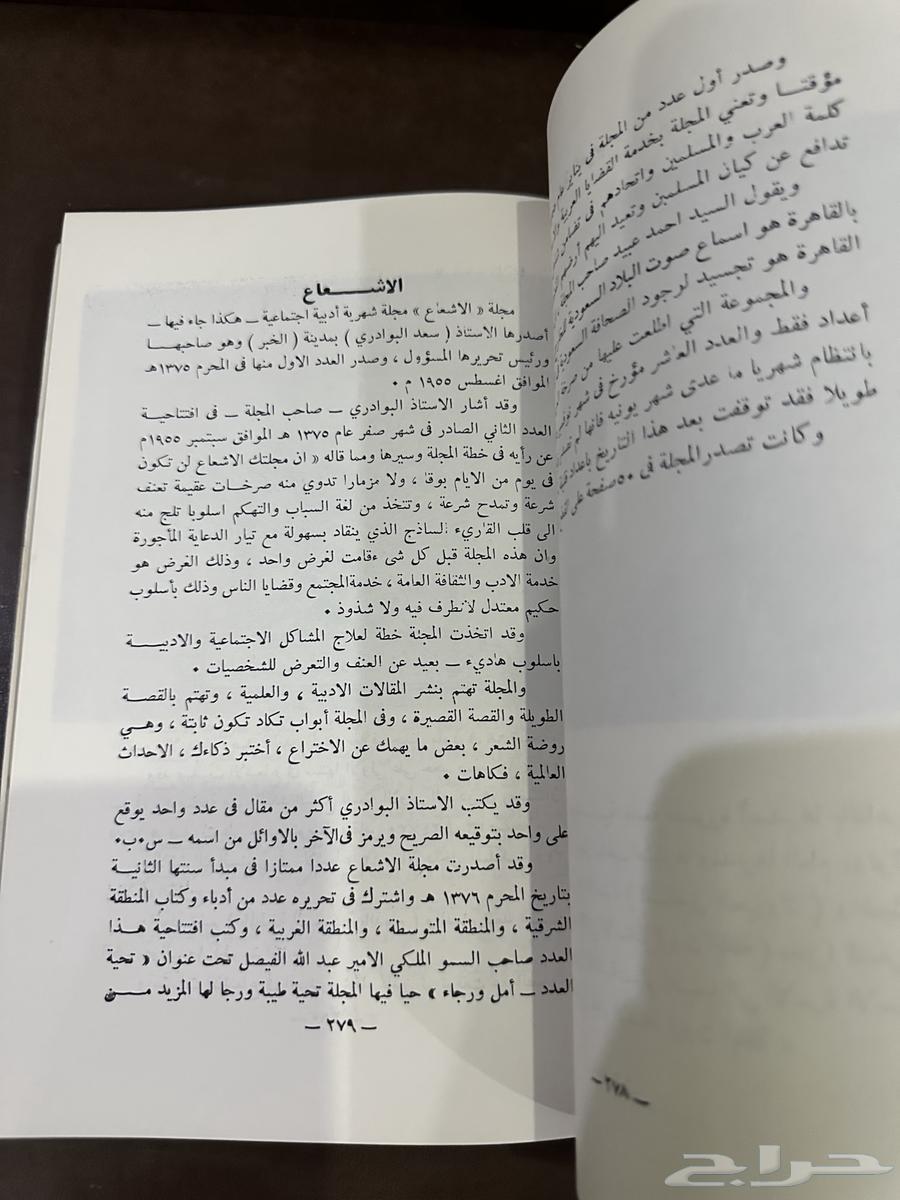 وصدر أول عدد من المجلة فى يناير
مؤقتـا وتعني المجلة بخدمة القضايا العربية
كلمة العرب والمسلمين واتحادهم فى تضامن
تدافع عن كيان المسلمين وتعيد اليهم أرضهم
ويقول السيد احمد عبيد صاحب المجلة
بالقاهرة هو اسماع صوت البلاد السعودية
القاهرة هو تجسيد لوجود الصحافة السعودية
والمجموعة التي اطلعت عليها من
أعداد فقط والعدد العاشر مؤرخ فى شهر
بانتظام شهريا ما عدى شهر يونيه فانها لم
طويلا فقد توقفت بعد هذا التاريخ
وكانت تصدر المجلة فى ٥٠ صفحة على
— ٢٧٨ —
الاشـــعاع
مجلة « الاشعاع » مجلة شهرية أدبية اجتماعية ـ هكذا جاء فيها ـ
أصدرها الاستاذ ( سعد البوادري ) بمدينة ( الخبر ) وهو صاحبهـا
ورئيس تحريرها المسؤول ، وصدر العدد الاول منها فى المحرم ١٣٧٥هـ
الموافق اغسطس ١٩٥٥ م ٠
وقد أشار الاستاذ البوادري ـ صاحب المجلة ـ فى افتتاحية
العدد الثاني الصادر فى شهر صفر عام ١٣٧٥ هـ الموافق سبتمبر ١٩٥٥م
عن رأيه فى خطة المجلة وسيرها ومما قاله « ان مجلتك الاشعاع لن تكون
فى يوم من الايام بوقا ، ولا مزمارا تدوي منه صرخـات عقيمة تعنف
شرعة وتمدح شرعة ، وتتخذ من لغة السباب والتهكم اسلوبا تلج منه
الى قلب القاريء الساذج الذي ينقاد بسهولة مع تيار الدعاية المأجورة
وان هذه المجلة قبل كل شى ءقامت لغرض واحد ، وذلك الغرض هو
خدمة الادب والثقافة العامة ، خدمةالمجتمع وقضايا الناس وذلك بأسلوب
حكيم معتدل لاتطرف فيه ولا شذوذ ٠
وقد اتخذت المجلة خطة لعلاج المشاكل الاجتماعية والادبيـــة
باسلوب هاديء ـ بعيد عن العنف والتعرض للشخصيات ٠
والمجلة تهتم بنشر المقالات الادبية ، والعلمية ، وتهتم بالقصة
الطويلة والقصة القصيرة ، وفى المجلة أبواب تكاد تكون ثابتة ، وهــي
روضة الشعر ، بعض ما يهمك عن الاختراع ، أختبر ذكاءك ، الاحداث
العالمية ، فكاهات ٠
وقد يكتب الاستاذ البوادري أكثر من مقال فى عدد واحد يوقع
على واحد بتوقيعه الصريح ويرمز فىالآخر بالاوائل من اسمه ـ س٠ب٠
وقد أصدرت مجلة الاشعاع عددا ممتازا فى مبدأ سنتها الثانيـة
بتاريخ المحرم ١٣٧٦ هـ واشترك فى تحريره عدد من أدباء وكتاب المنطقة
الشرقية ، والمنطقة المتوسطة ، والمنطقة الغربية ، وكتب افتتاحية هــذا
العدد صاحب السمو الملكي الامير عبد الله الفيصل تحت عنوان « تحية
العدد ـ أمل ورجاء » حيا فيها المجلة تحية طيبة ورجا لها المزيد مـــن
— ٢٧٩ —
حراج